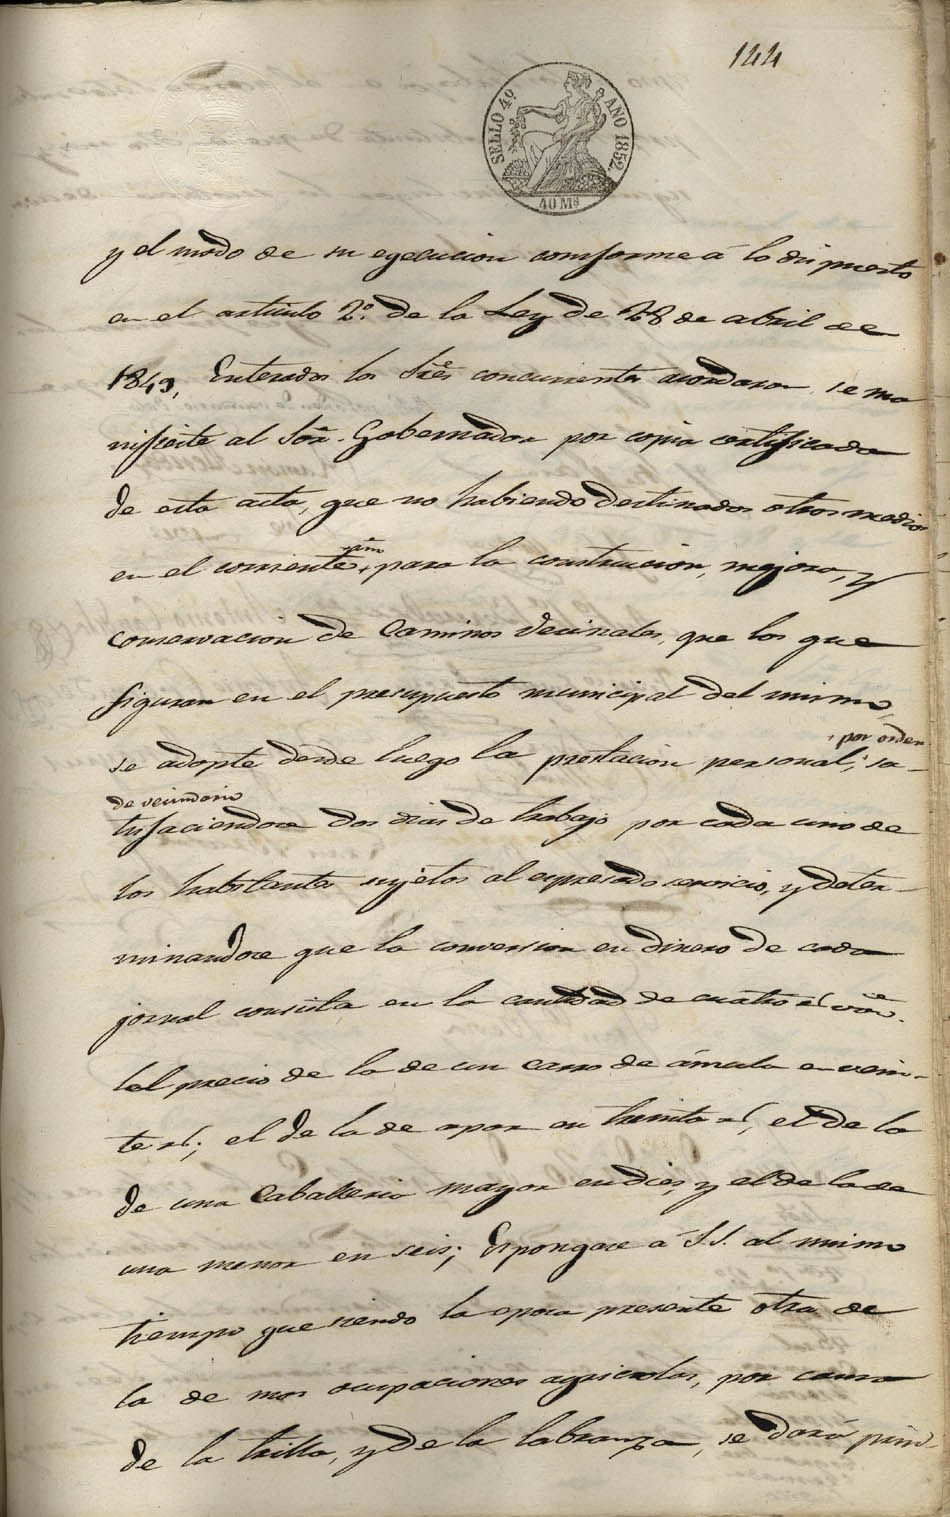 144
SELLO 4º AÑO 1852.
40 Ms
y el modo de su egecucion comforme á lo dispuesto
en el articulo 2º. de la Ley de 28 de abril de
1849, Enterados los Sres concurrentes acordaron se ma
nifieste al Sor. Gobernador por copia certificada
de esta acta, que no habiendo destinados otros medios
año
en el corriente + para la construccion, mejora, y
conservacion de Caminos Vecinales, que los que
figuran en el presupuesto municipal del mismo
+ por orden
se adopte desde luego la prestacion personal; sa-
de vecindario
tisfaciendose dos dias de trabajo por cada uno de
los habitantes sujetos al expresado servicio, y deter-
minandose que la conversion en dinero de cada
jornal consista en la cantidad de cuatro rs von.
el precio de la de un carro de ámula en vein-
te rs; el de la de apar en treinta rs, el de la
de una Caballeria mayor en dies, y el de la de
una menor en seis; Espongase á S.S. al mismo
tiempo que siendo la epoca presente otra de
la de mas ocupaciones agricolas, por causa
de la trilla, y de la labranza, se dará prin-